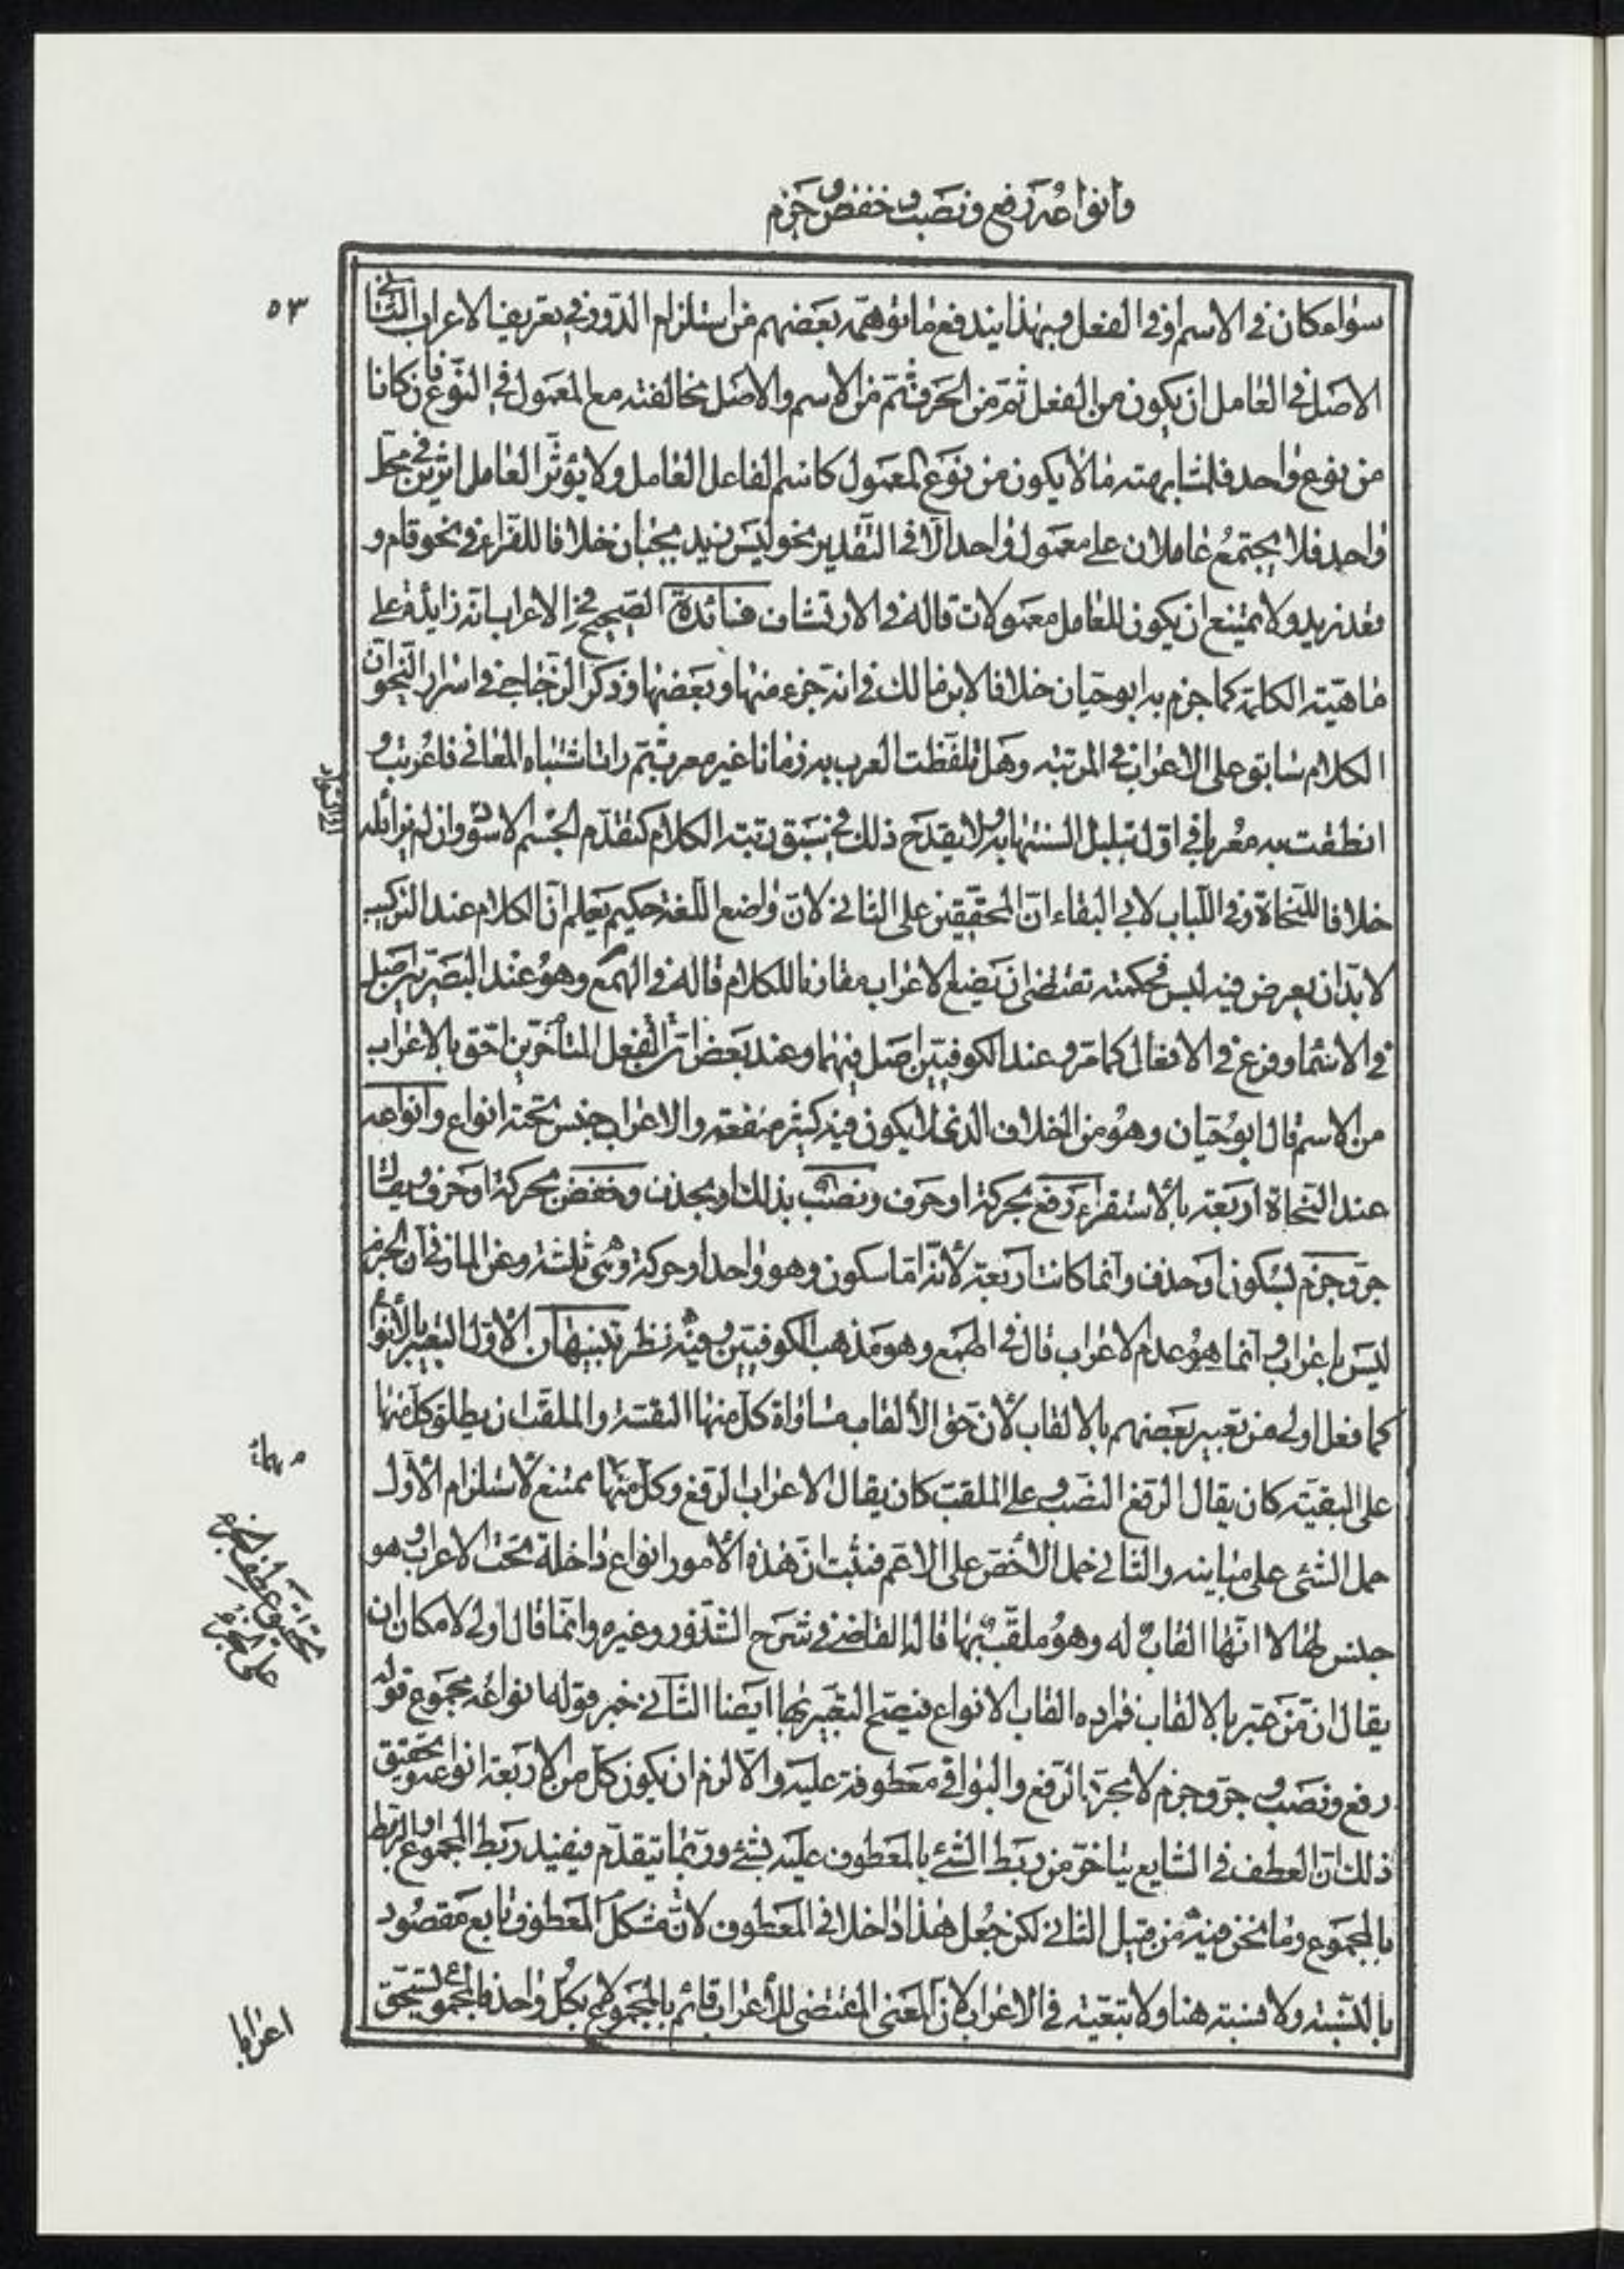 وانواعه رفع ونصب وخفض وجزم
٥٣
سواء كان في الاسم او في الفعل وبهذا يندفع ما توهمه بعضهم من استلزام الدور في تعريف الاعراب الثاني
الاصل في العامل ان يكون من الفعل ثم من الحرف ثم من الاسم والاصل مخالفته مع المعمول في النوع فان كانا
من نوع واحد فلمشابهته ما لا يكون من نوع المعمول كاسم الفاعل العامل ولا يؤثر العامل اثرين في محل
واحد فلا يجتمع عاملان على معمول واحد الا في التقدير نحو ليس زيد بجبان خلافا للفراء في نحو قام و
قعد زيد ولا يمتنع ان يكون للعامل معمولات قاله في الارتشاف فائدة الصحيح في الاعراب انه زايد على
ماهية الكلمة كما جزم به ابو حيان خلافا لابن مالك في انه جزء منها وبعضها وذكر الزجاجي في اسرار النحو ان
الكلام سابق على الاعراب في المرتبة وهل تلفظت العرب به زمانا غير معرب ثم رات اشتباه المعاني فاعربت و
انطقت به معربا في اول تبلبل السنتها به ولا يقدح ذلك في سبق رتبة الكلام كتقدم الجسم الاسود وان لم يزايله
خلافا للنحاة وفي اللباب لابي البقاء ان المحققين على الثاني لان واضع اللغة حكيم يعلم ان الكلام عند التركيب
لا بد ان يعرض فيه لبس فحكمته تقتضي ان يضع الاعراب مقارنا للكلام قاله في الهمع وهو عند البصريين اصل
في الاسماء وفرع في الافعال كما مر وعند الكوفيين اصل فيهما وعند بعض المتأخرين ان الفعل احق بالاعراب
من الاسم قال ابو حيان وهو من الخلاف الذي لا يكون فيه كثير منفعة والاعراب جنس تحته انواع وانواعه
عند النحاة اربعة بالاستقراء رفع بحركة او حرف ونصب بذلك او بحذف وخفض بحركة او حرف ويقال
جر وجزم بسكون او حذف وانما كانت اربعة لانه اما سكون وهو واحد او حركة وهي ثلثة وعن المازني ان الجزم
ليس باعراب وانما هو عدم الاعراب قال في الهمع وهو مذهب الكوفيين وفيه نظر تنبيهان الاول التعبير بالانواع
كما فعل اولى من تعبير بعضهم بالالقاب لان حق الالقاب مساواة كل منها البقية والملقب ان يطلق كل منها
على البقية كان يقال الرفع النصب وعلى الملقب كان يقال الاعراب الرفع وكل منها ممتنع لاستلزام الاول
حمل الشئ على مباينه والثاني حمل الاخص على الاعم فثبت ان هذه الامور انواع داخلة تحت الاعراب وهو
جنس لها لا انها القاب له وهو ملقب بها قاله القاضي في شرح الشذور وغيره وانما قال اولى لامكان ان
يقال ان من عبر بالالقاب فمراده القاب الانواع فيصح التعبير بها ايضا الثاني خبر قوله انواعه مجموع قوله
رفع ونصب وجر وجزم لا مجرد الرفع والبواقي معطوفة عليه والا لزم ان يكون كل من الاربعة انواعه وتحقيق
ذلك ان العطف في الشايع يتأخر من ربط الشئ بالمعطوف عليه بشئ وربما يتقدم فيفيد ربط المجموع او الربط
بالمجموع وما نحن فيه من قبيل الثاني لكن جعل هذا داخلا في المعطوف لانه مشكل المعطوف تابع مقصود
بالنسبة ولا نسبة هنا ولا تبعية في الاعراب لان المعنى المقتضي للاعراب قائم بالمجموع لا بكل واحد فالمجموع يستحق
تحقيق عطف الجزء
على الجزء
اعرابا